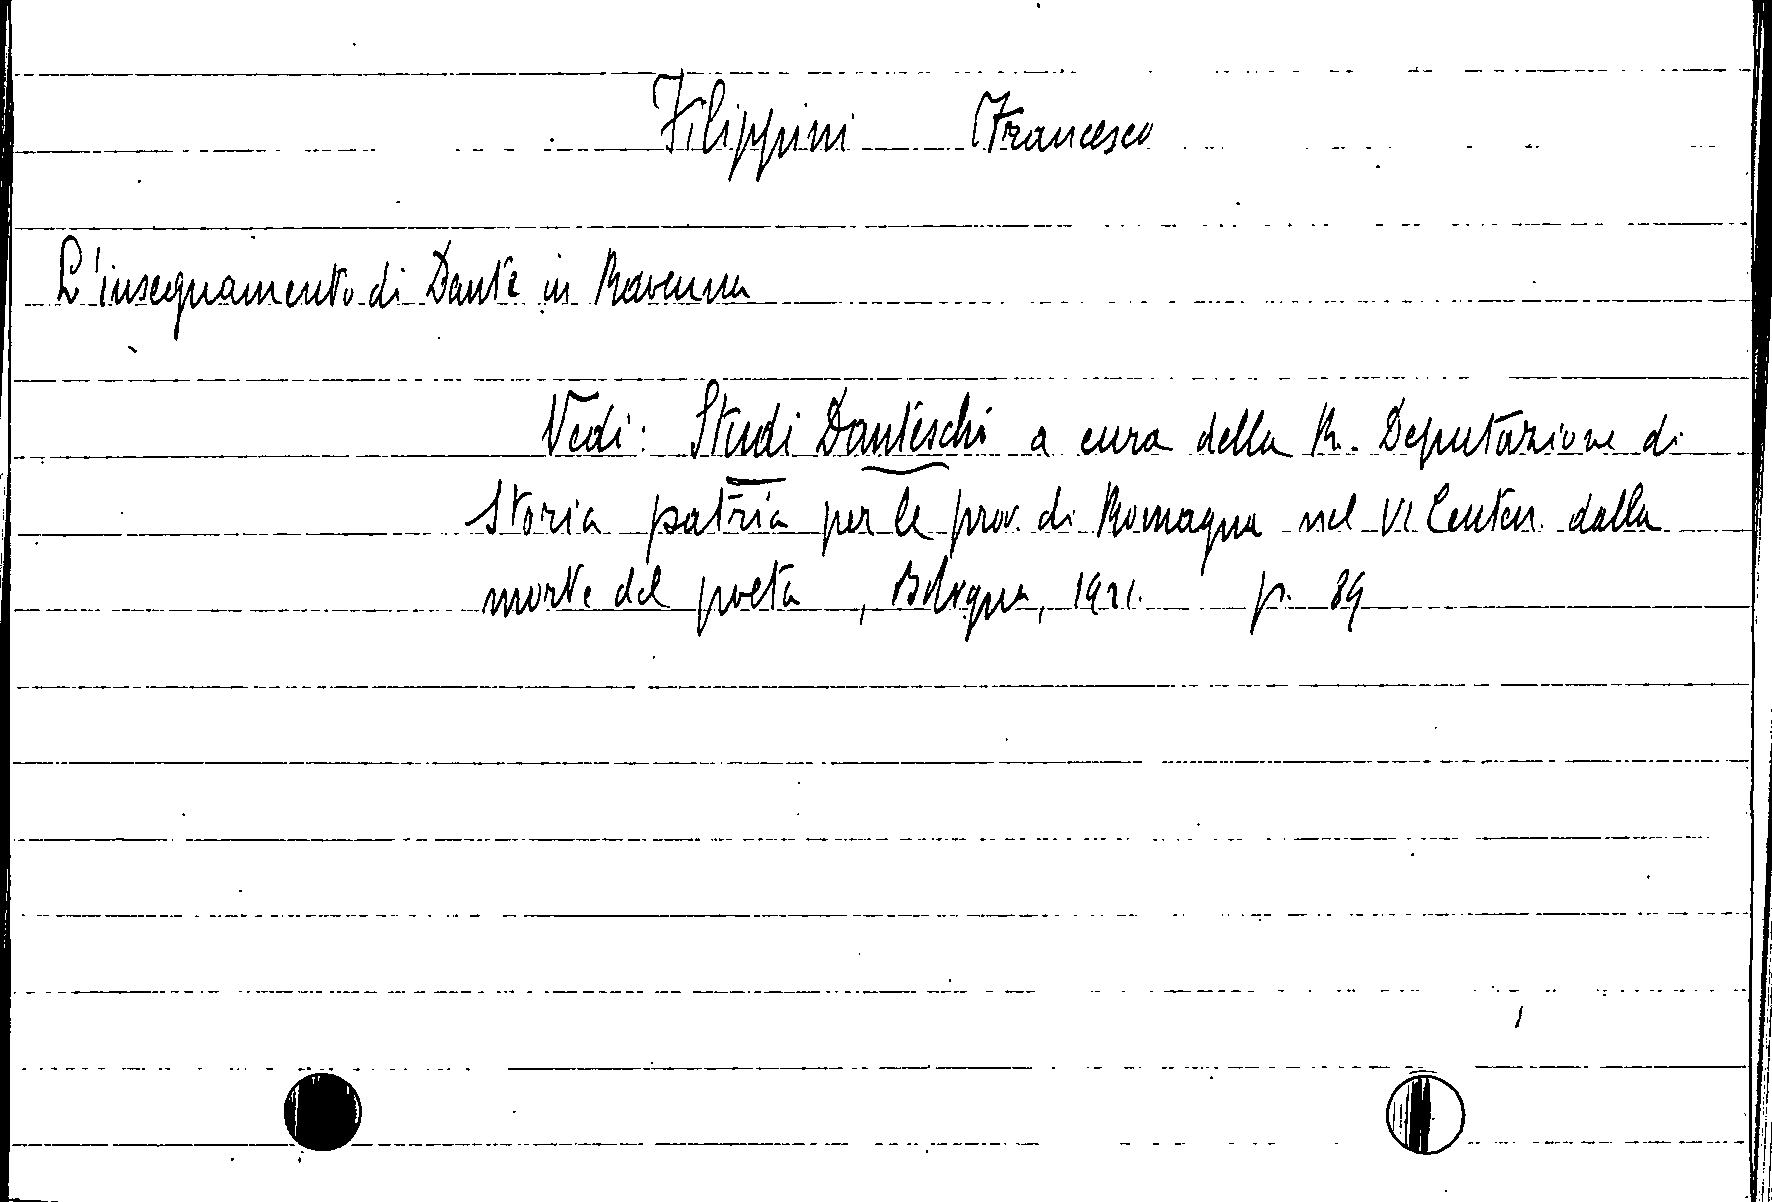 Filippini Francesco
L'insegnamento di Dante in Ravenna
Vedi: Studi Danteschi a cura della R. Deputazione di
Storia patria per le prov. di Romagna nel VI Centen. dalla
morte del poeta, Bologna, 1921. p. 89